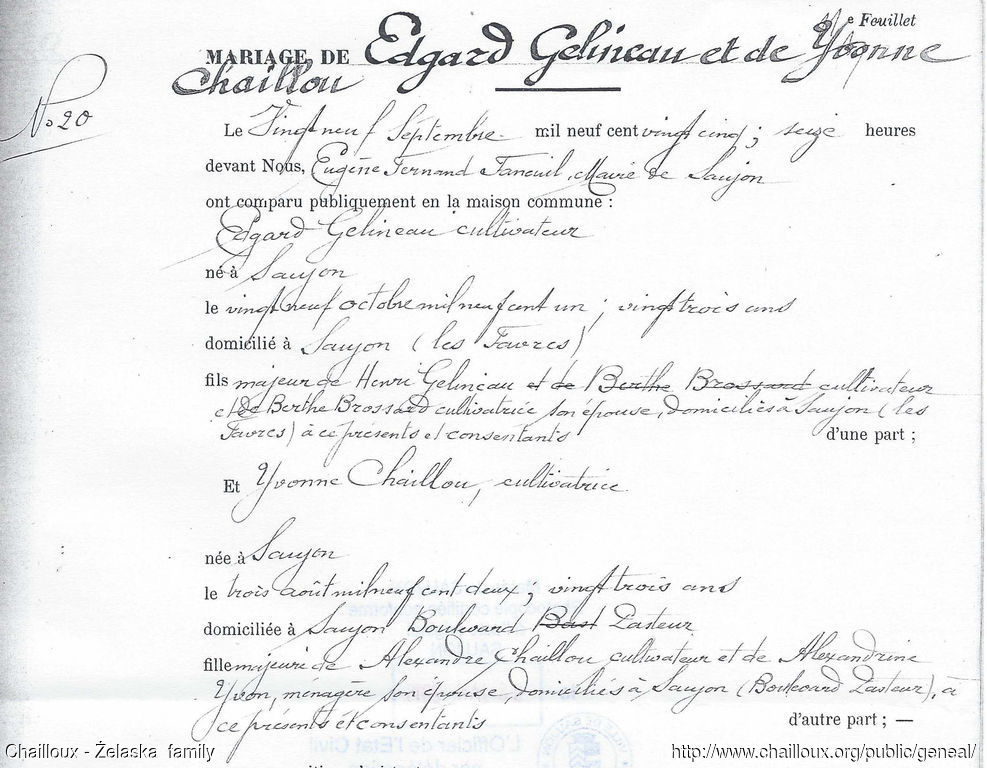 e Feuillet
MARIAGE DE Edgard Gelineau et de Yvonne
Chaillou
No 20
Le Vingt neuf Septembre mil neuf cent vingt cinq ; seize heures
devant Nous, Eugène Fernand Faneuil, Maire de Saujon
ont comparu publiquement en la maison commune :
Edgard Gelineau cultivateur
né à Saujon
le vingt neuf octobre mil neuf cent un ; vingt trois ans
domicilié à Saujon (les Favres)
fils majeur de Henri Gelineau et de Berthe Brossard cultivateur
et de Berthe Brossard cultivatrice son épouse, domiciliés à Saujon (les
Favres) à ce présents et consentants d'une part ;
Et Yvonne Chaillou, cultivatrice
née à Saujon
le trois août mil neuf cent deux ; vingt trois ans
domiciliée à Saujon Boulevard Pasteur
fille majeure de Alexandre Chaillou cultivateur et de Alexandrine
Yvon, ménagère son épouse, domiciliés à Saujon (Boulevard Pasteur), à
ce présents et consentants d'autre part ; —
Chailloux - Želaska family http://www.chailloux.org/public/geneal/